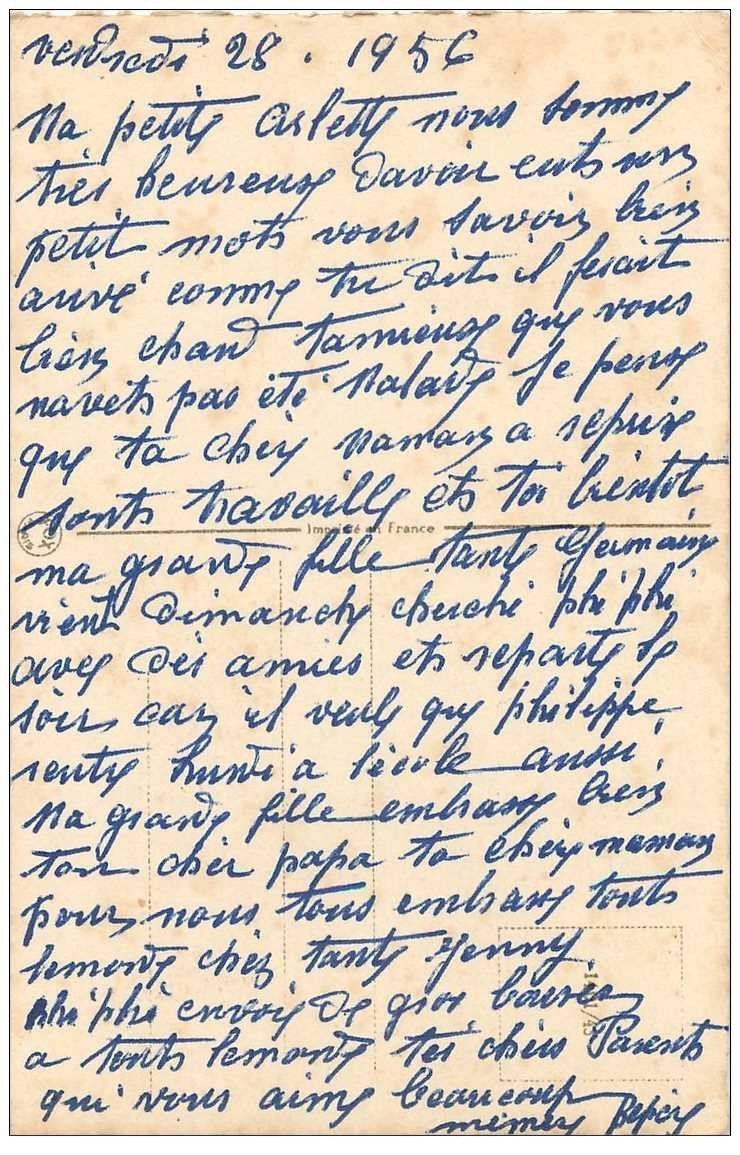 vendredi 28. 1956
Ma petite Arlette nous somme
très heureux davoir euts un
petit mots vous savoir bien
arivé comme tu dits il fesait
bien chaud tamieux que vous
navets pas été Malade Je pense
que ta chère Maman a repris
sonts travaille ets toi bientot
Imprimé en France
ma grande fille tante Germaine
vient dimanche cherché phi phi
avec dès amies ets reparte le
soir car il veule que philippe
rentre Lundi a lécole aussi,
Ma grande fille embrasse bien
ton chèr papa ta chère maman
pour nous tous embrasse touts
lemonde chèz tante Jenny
phi phi envoie de gros baisers
a touts lemonde tes chèrs Parents
qui vous aime beaucoup
mémère Pépère